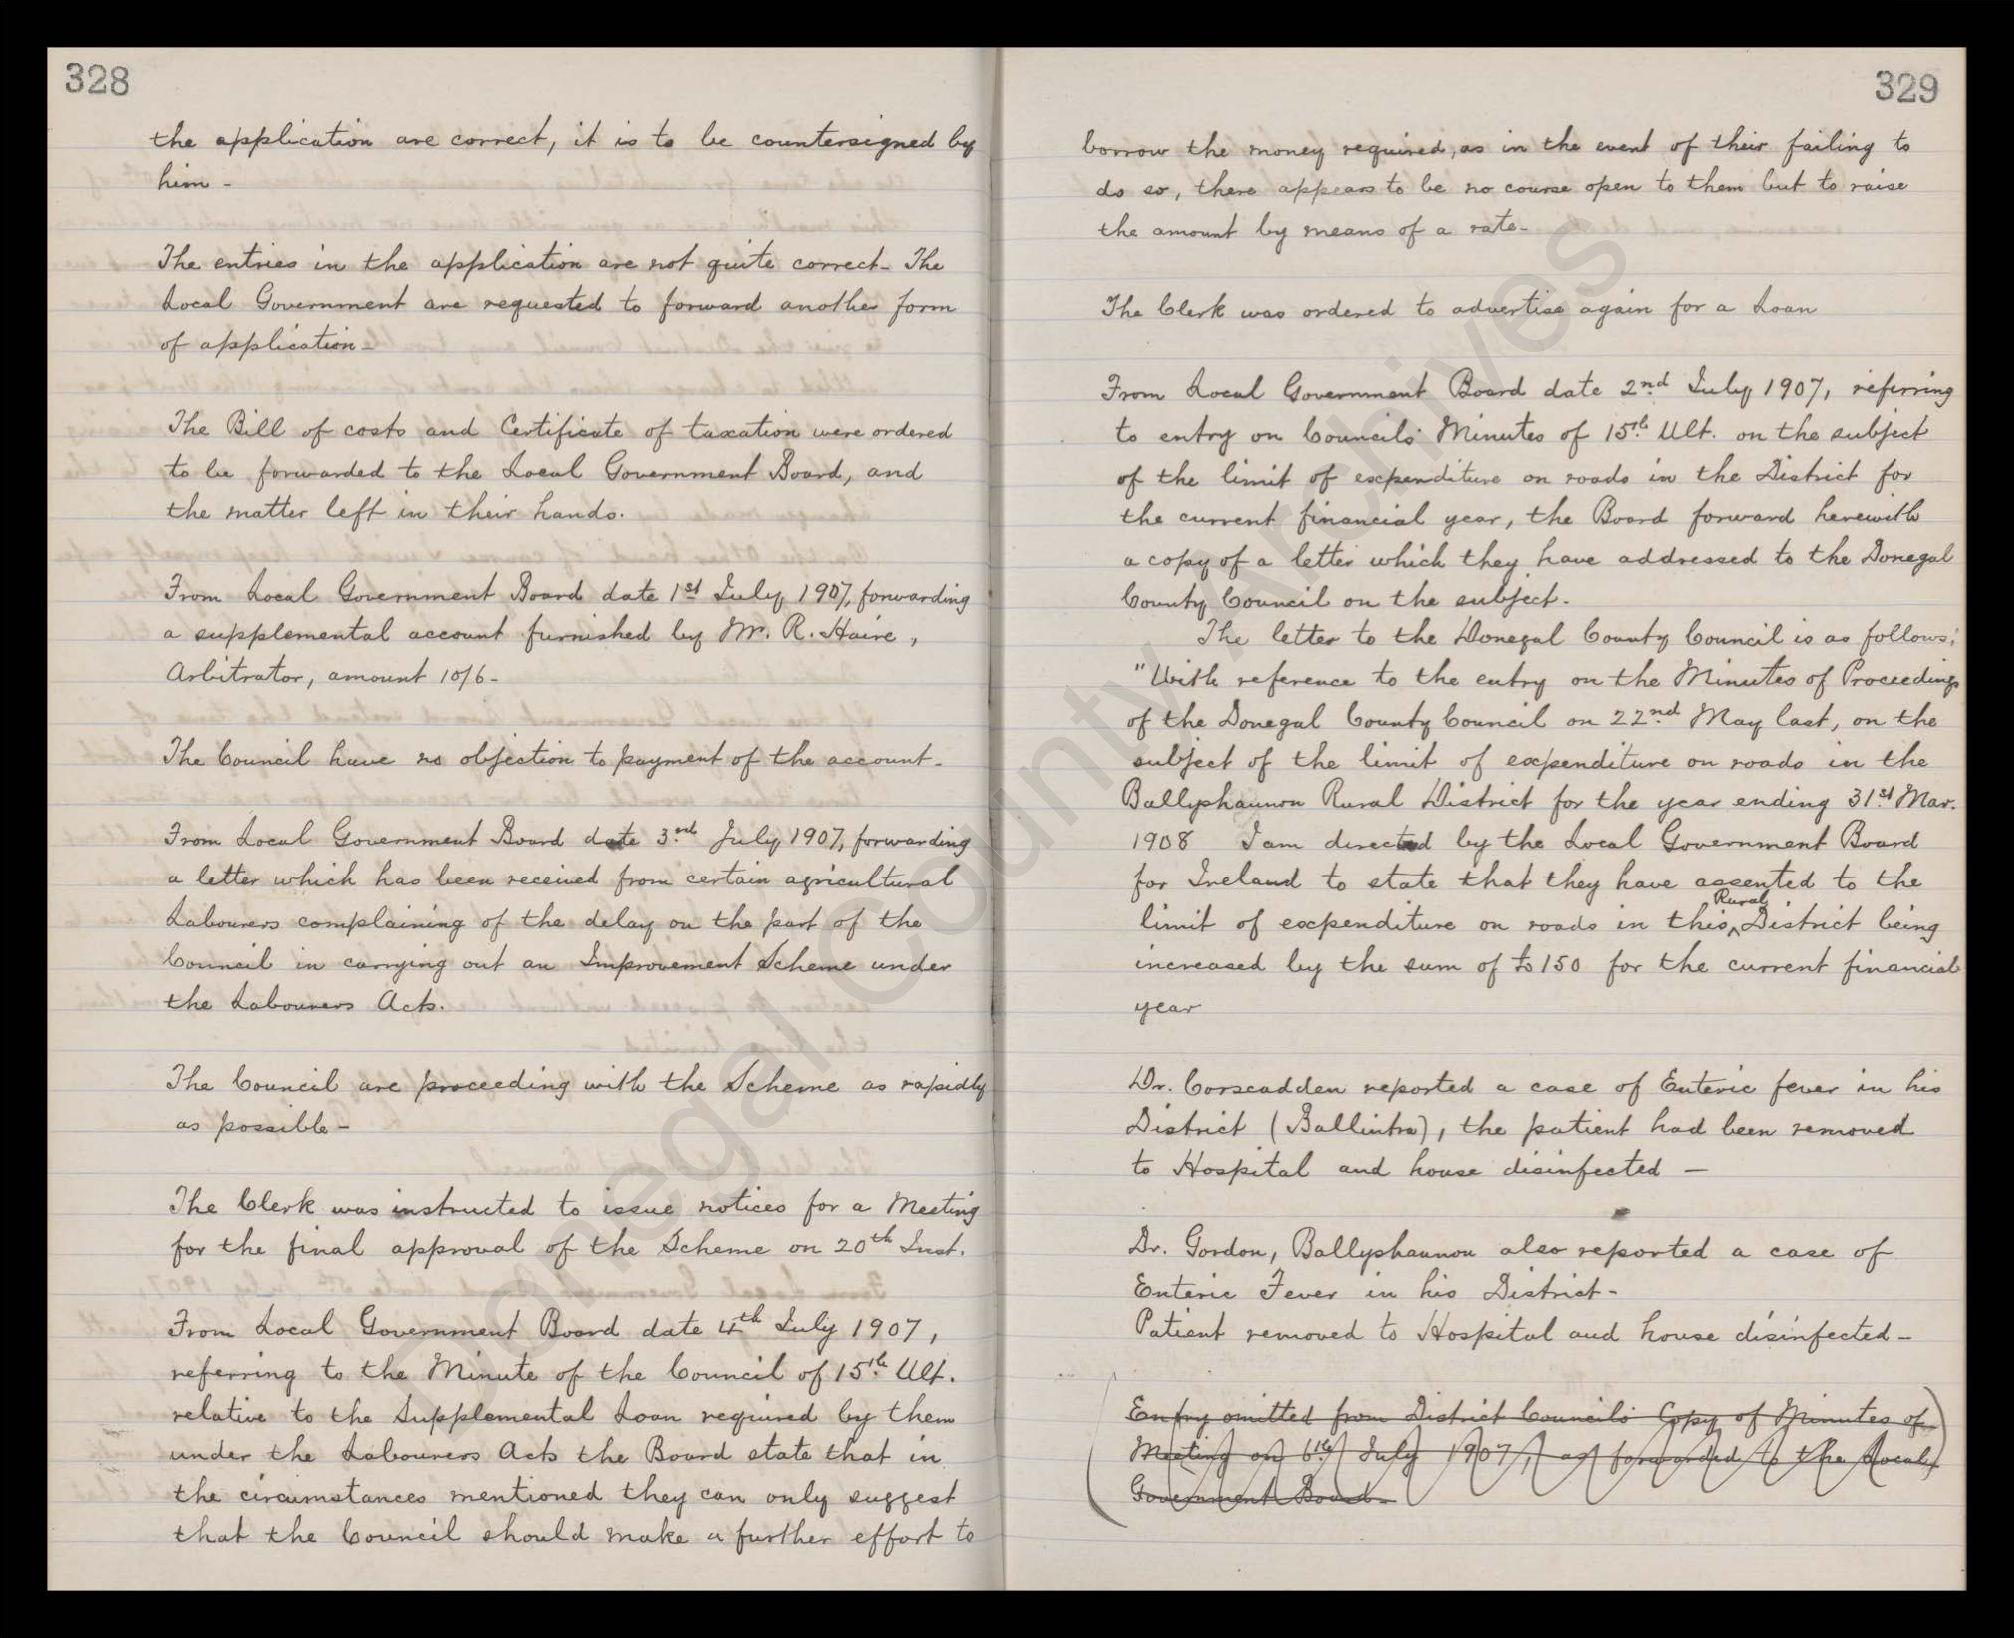 328
the application are correct, it is to be countersigned by
him -
The entries in the application are not quite correct - The
Local Government are requested to forward another form
of application -
The Bill of costs and Certificate of taxation were ordered
to be forwarded to the Local Government Board, and
the matter left in their hands.
From Local Government Board date 1st July 1907, forwarding
a supplemental account furnished by Mr. R. Haire,
Arbitrator, amount 10/6 -
The Council have no objection to payment of the account -
From Local Government Board date 3rd July 1907, forwarding
a letter which has been received from certain agricultural
Labourers complaining of the delay on the part of the
Council in carrying out an Improvement Scheme under
the Labourers Acts.
The Council are proceeding with the Scheme as rapidly
as possible -
The Clerk was instructed to issue notices for a Meeting
for the final approval of the Scheme on 20th Inst.
From Local Government Board date 4th July 1907,
referring to the Minute of the Council of 15th Ult.
relative to the Supplemental Loan required by them
under the Labourers Acts the Board state that in
the circumstances mentioned they can only suggest
that the Council should make a further effort to
329
borrow the money required, as in the event of their failing to
do so, there appears to be no course open to them but to raise
the amount by means of a rate -
The Clerk was ordered to advertise again for a Loan
From Local Government Board date 2nd July 1907, referring
to entry on Councils' Minutes of 15th Ult. on the subject
of the limit of expenditure on roads in the District for
the current financial year, the Board forward herewith
a copy of a letter which they have addressed to the Donegal
County Council on the subject.
The letter to the Donegal County Council is as follows:
"With reference to the entry on the Minutes of Proceedings
of the Donegal County Council on 22nd May last, on the
subject of the limit of expenditure on roads in the
Ballyshannon Rural District for the year ending 31st Mar.
1908 I am directed by the Local Government Board
for Ireland to state that they have assented to the
limit of expenditure on roads in this Rural District being
increased by the sum of £150 for the current financial
year
Dr. Corscadden reported a case of Enteric fever in his
District (Ballintra), the patient had been removed
to Hospital and house disinfected -
Dr. Gordon, Ballyshannon also reported a case of
Enteric Fever in his District -
Patient removed to Hospital and house disinfected -
Entry omitted from District Councils' Copy of Minutes of
Meeting on 6th July 1907, as forwarded to the Local
Government Board -
Donegal County Archives